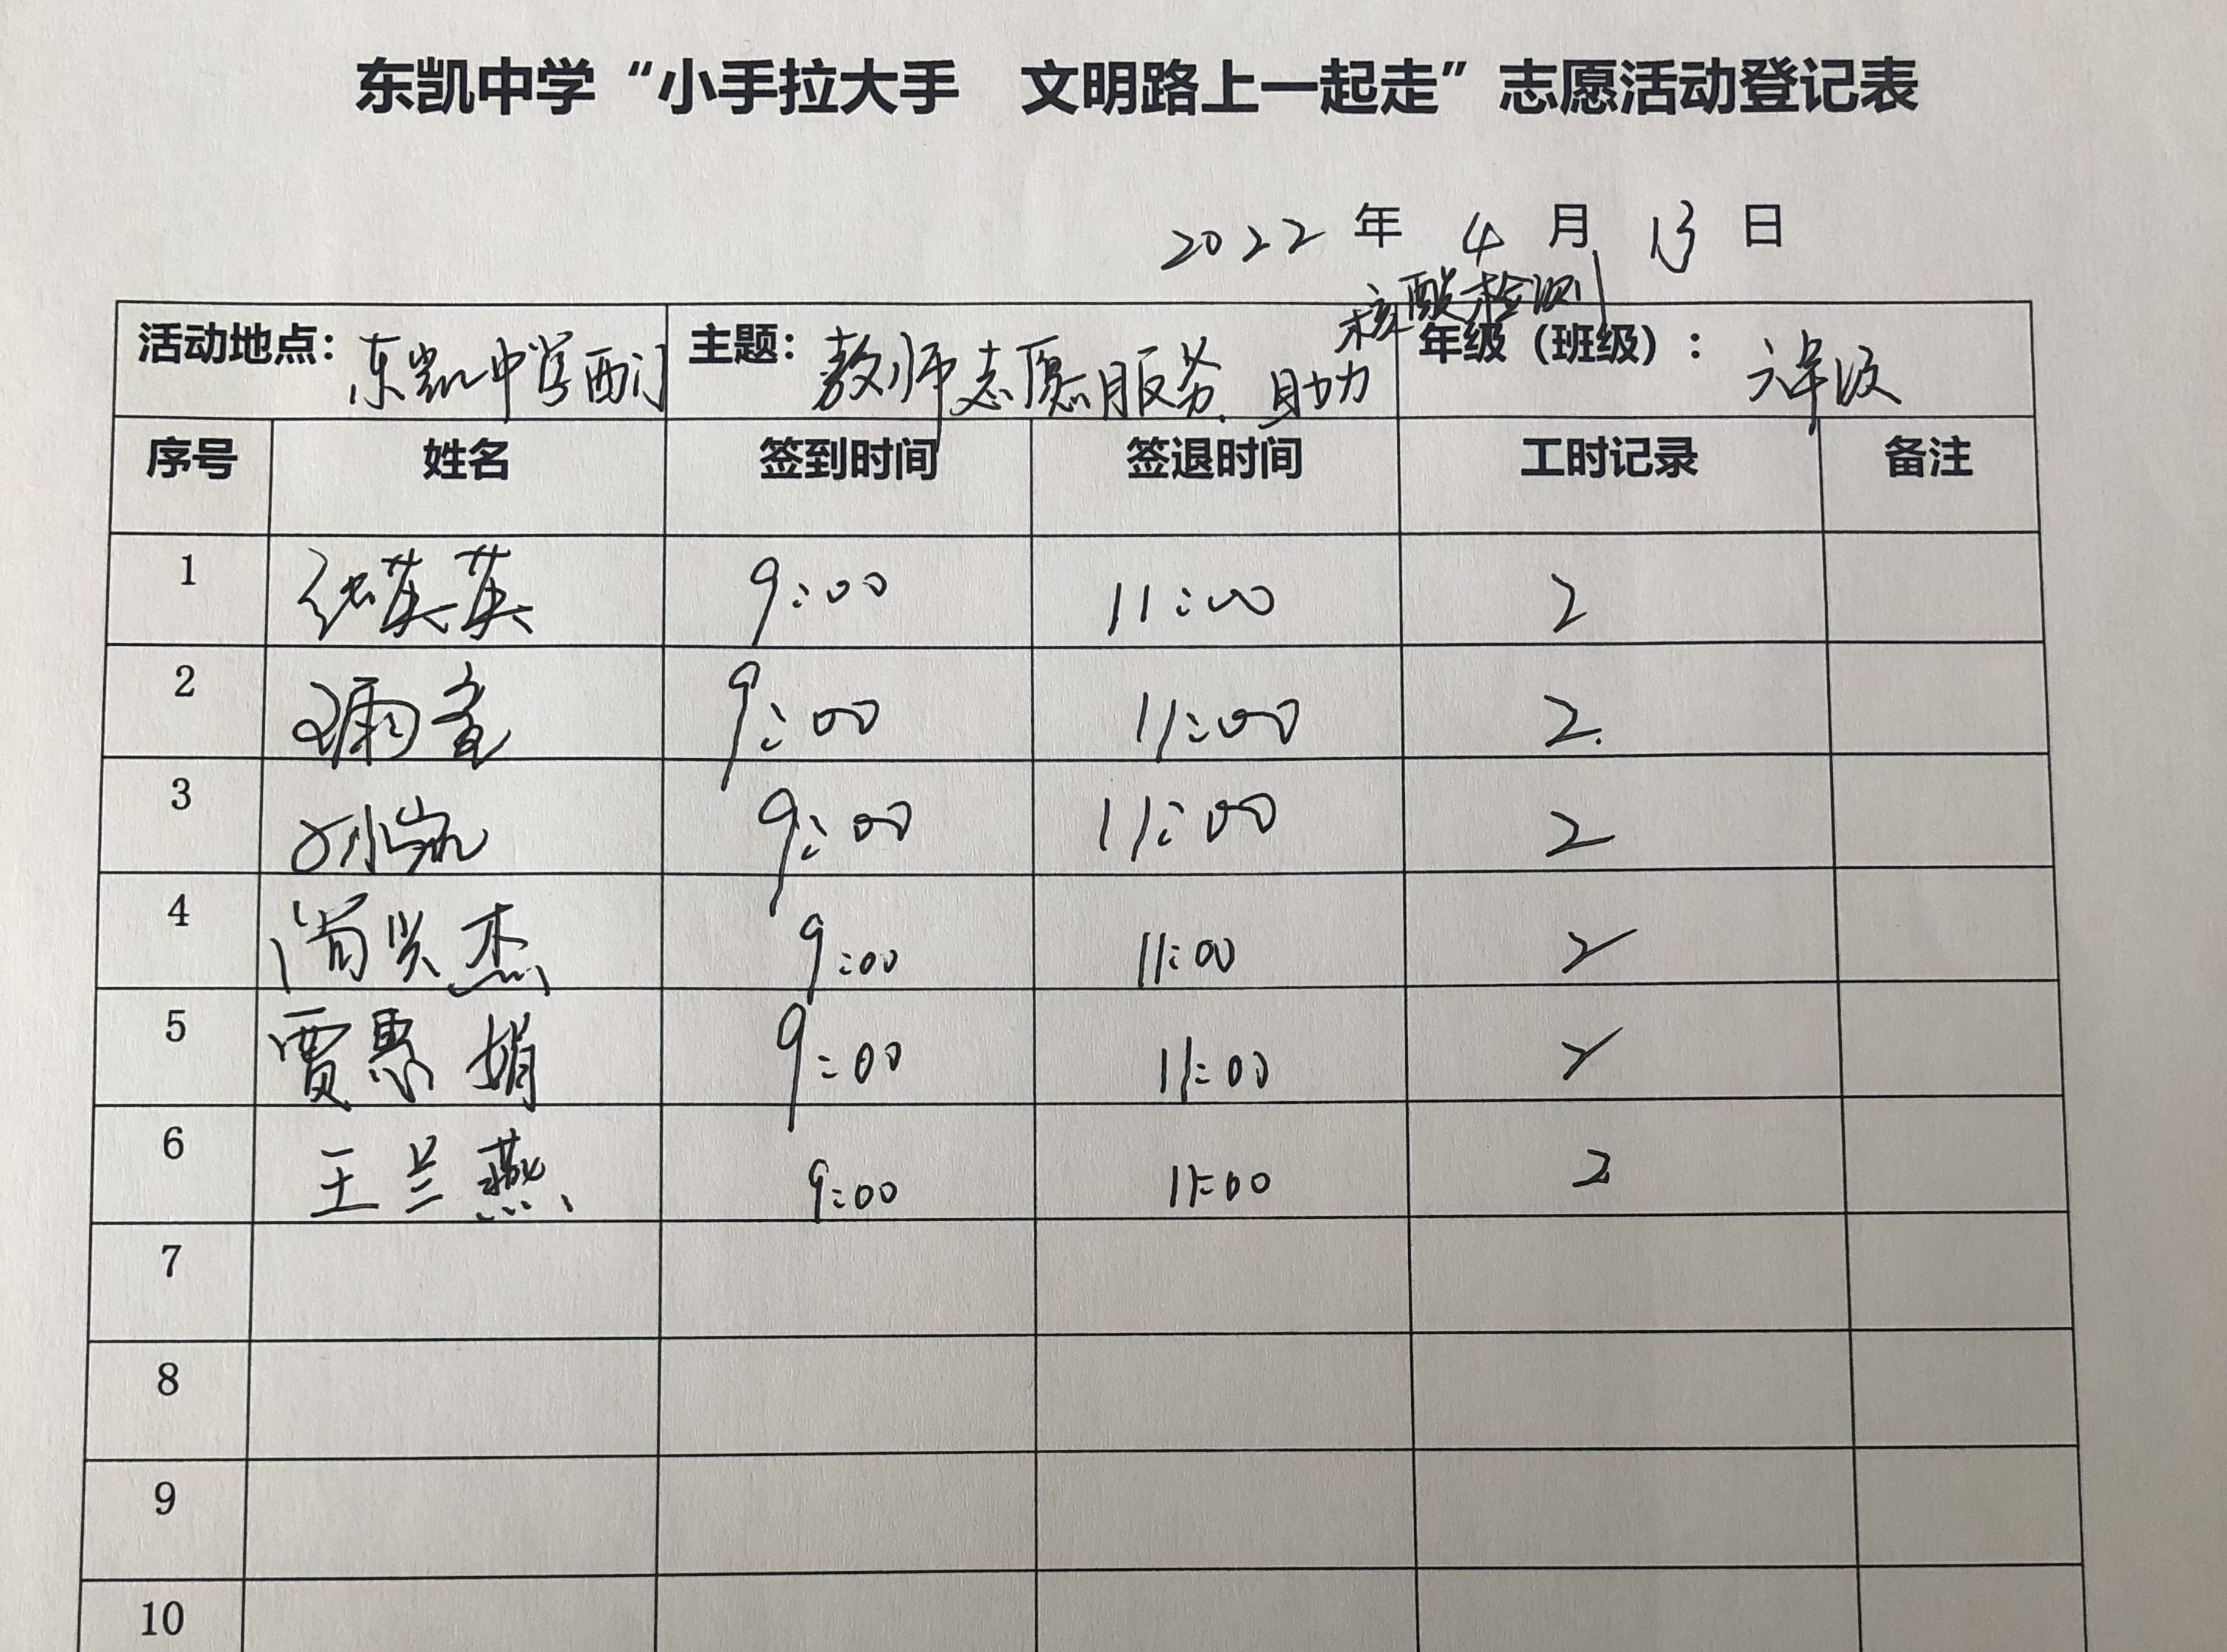 东凯中学“小手拉大手 文明路上一起走”志愿活动登记表
2022 年 4 月 13 日
活动地点：东凯中学西门 主题：教师志愿服务，助力核酸检测 年级（班级）：六年级
序号 姓名 签到时间 签退时间 工时记录 备注
1 英英 9:00 11:00 2
2 9:00 11:00 2.
3 9:00 11:00 2
4 杰 9:00 11:00 2
5 贾惠娟 9:00 11:00 2
6 王兰燕 9:00 11:00 2
7
8
9
10